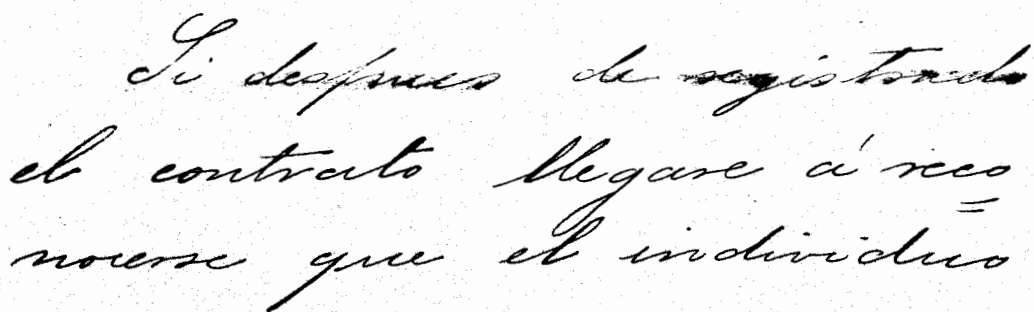 Si despues de registrado
el contrato llegare á reco=
nocerse que el individuo